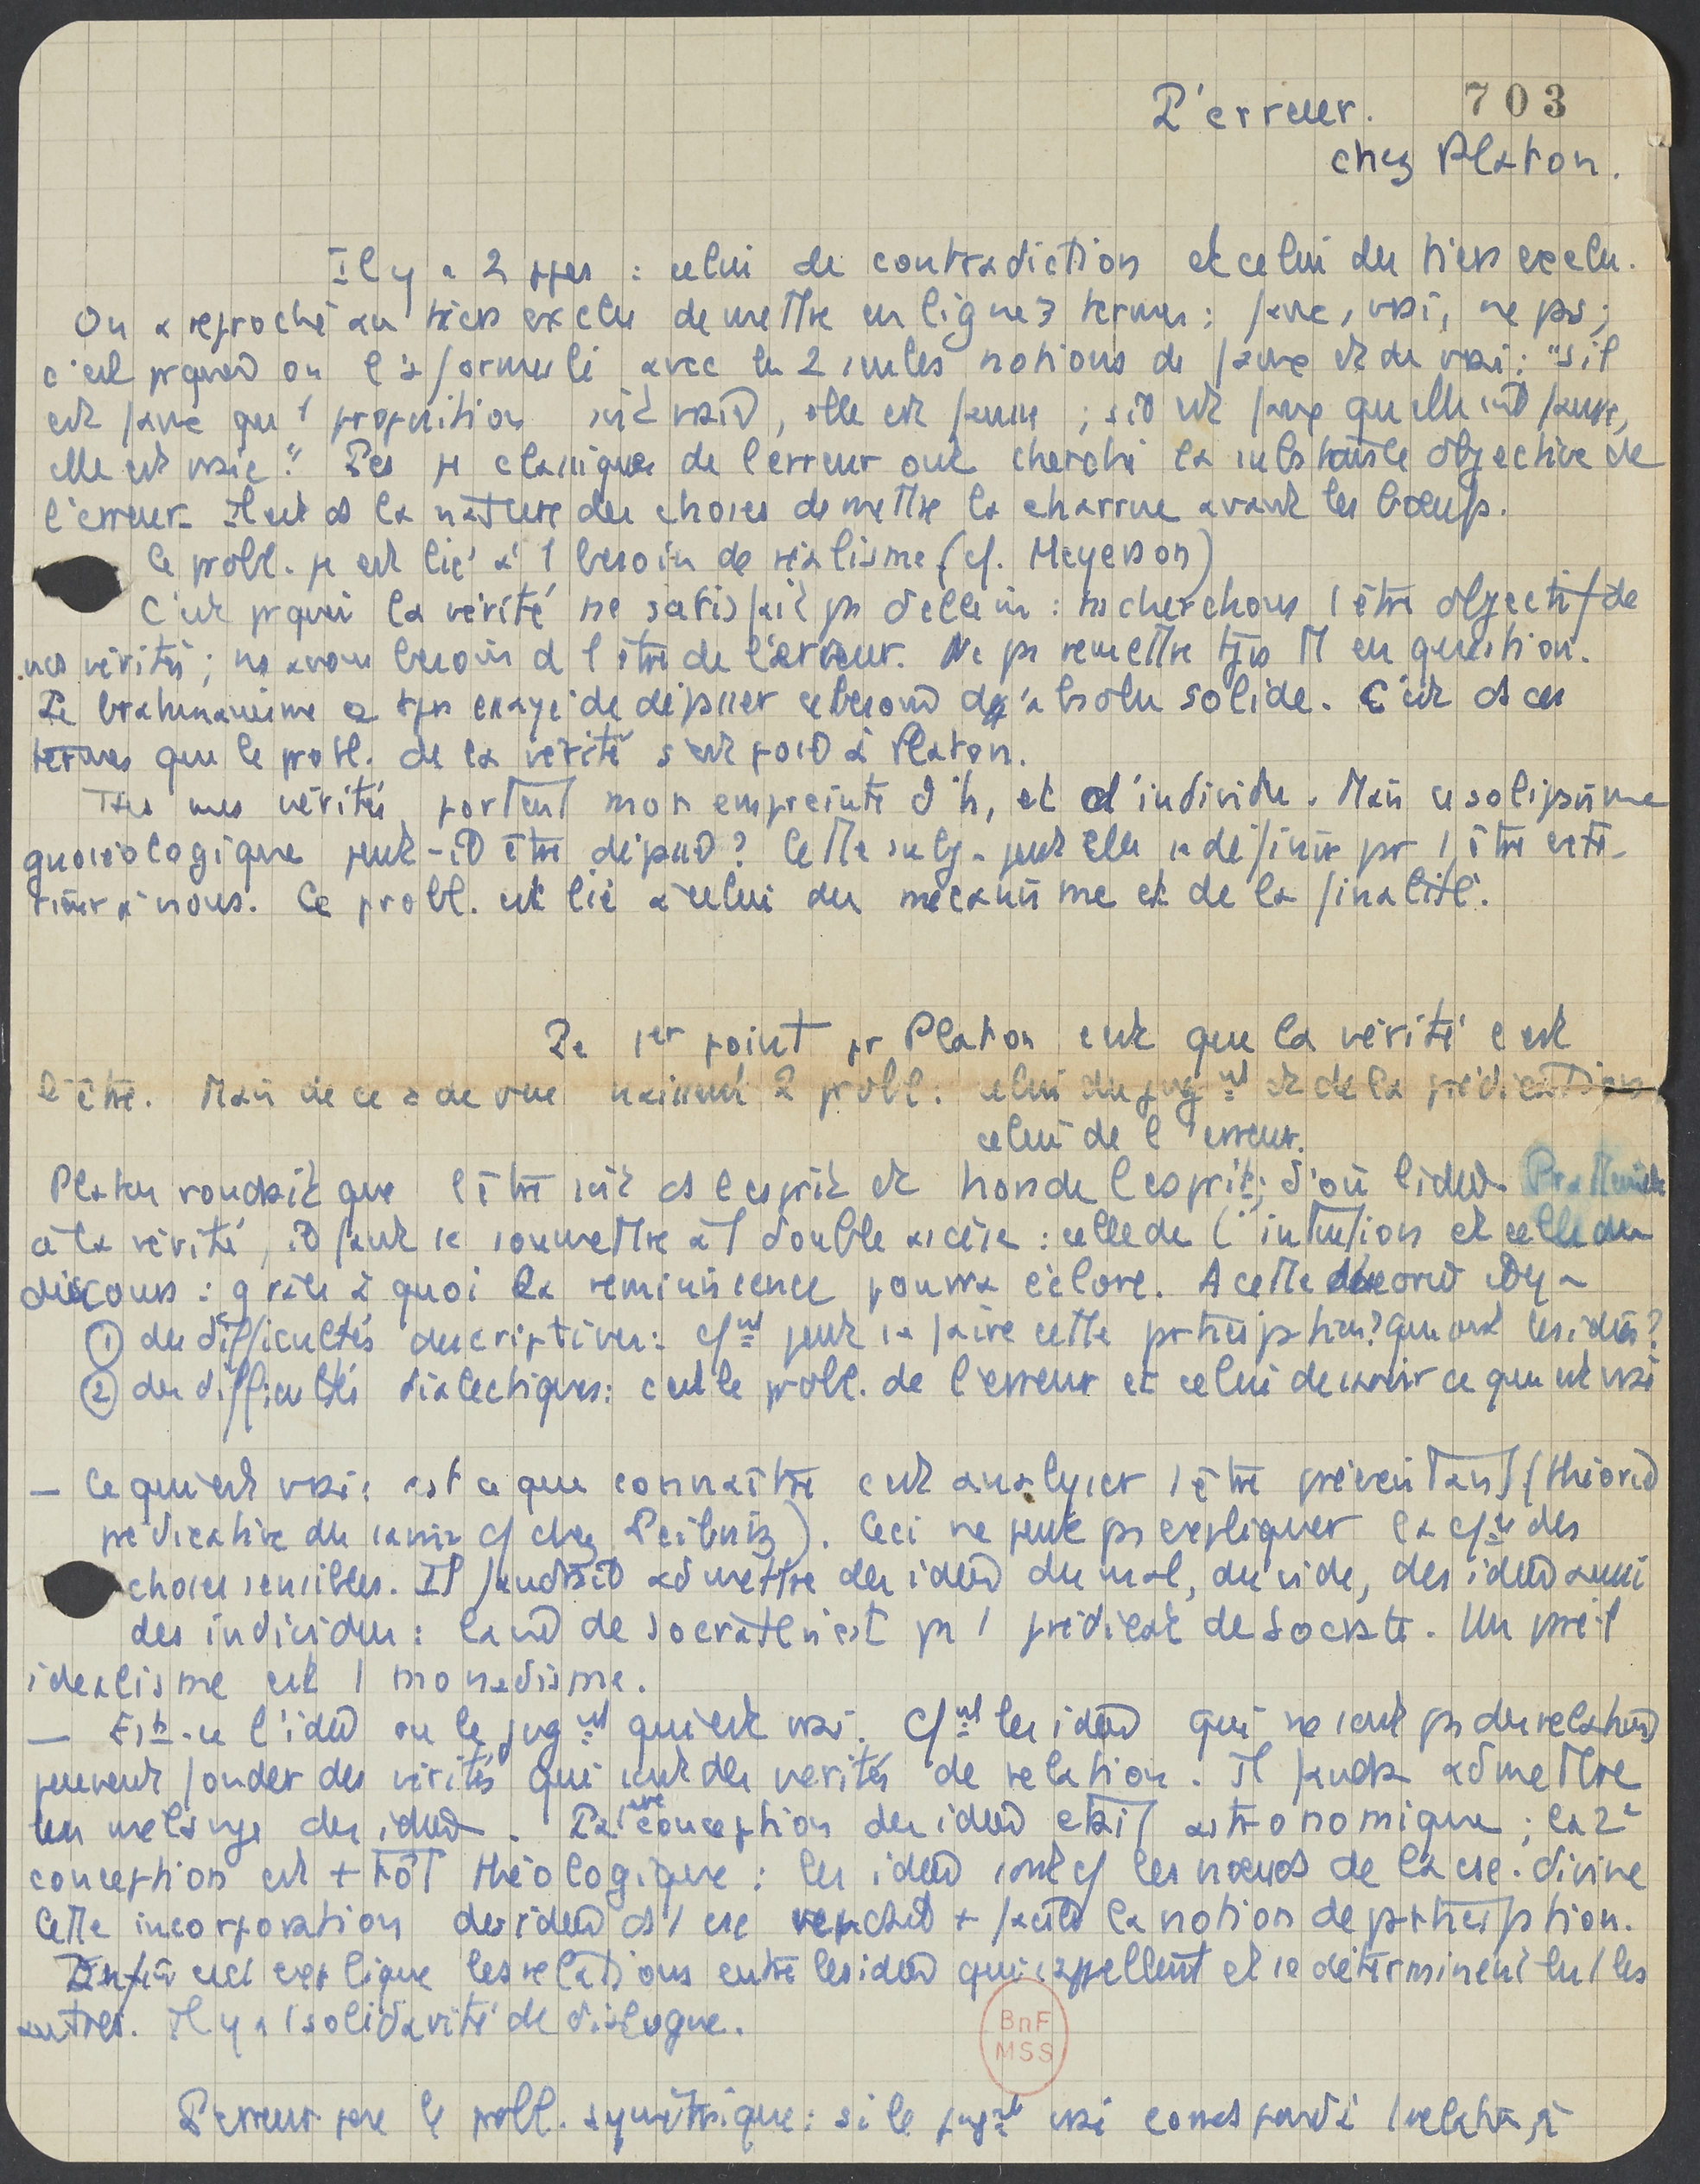 703
L'erreur.
chez Platon.
Il y a 2 ppes : celui de contradiction et celui du tiers exclu.
On a reproché au tiers exclu de mettre en ligne 3 termes : faux, vrai, ne ps ;
c'est pquoi on l'a formulé avec les 2 seules notions de faux et de vrai : "s'il
est faux qu'1 proposition soit vraie, elle est fausse ; s'il est faux qu'elle soit fausse,
elle est vraie". Les classiques de l'erreur ont cherché la substance objective de
l'erreur. Il est ds la nature des choses de mettre la charrue avant les bœufs.
Ce probl. est lié à 1 besoin de réalisme (cf. Meyerson)
C'est pquoi la vérité ne satisfait ps d'elle-m : ns cherchons l'être objectif de
nos vérités ; ns avons besoin d l'être de l'erreur. Ne ps remettre tjrs tt en question.
Le brahmanisme a tjrs essayé de dépasser ce besoin d'absolu solide. C'est ds ces
termes que le probl. de la vérité s'est posé à Platon.
Ttes mes vérités portent mon empreinte d'h, et d'individu. Mais ce solipsisme
gnoséologique peut-il être dépassé ? Cette subj. peut elle se définir pr 1 être exté-
rieur à nous. Ce probl. est lié à celui du mécanisme et de la finalité.
Le 1er point pr Platon est que la vérité c'est
l'être. Mais de ce de vue naissent 2 probl. : celui du jugnt et de la prédication,
celui de l'erreur.
Platon voudrait que l'être soit ds l'esprit et hors de l'esprit ; d'où l'idée.
à la vérité, il faut se soumettre à 1 double ascèse : celle de l'intuition et celle du
discours : grâce à quoi la réminiscence pourra éclore. A cette théorie il y a
① des difficultés descriptives : cfnt peut se faire cette prtcipation ? que sont les idées ?
② des difficultés dialectiques : c'est le probl. de l'erreur et celui de savoir ce que est vrai
— Ce qui est vrai : est ce que connaître c'est analyser 1 être préexistant (théorie
prédicative du savoir cf chez Leibniz). Ceci ne peut ps expliquer la des
choses sensibles. Il faudrait admettre des idées du mal, du vide, des idées aussi
des individus : de Socrate n'est ps 1 prédicat de Socrate. Un pareil
idéalisme est 1 monadisme.
— Est-ce l'idée ou le jugnt qui est vrai. Cfnt les idées qui ne sont ps des relations
peuvent fonder des vérités qui sont des vérités de relation. Il faudra admettre
un mélange des idées. La 1ère conception des idées était astronomique ; la 2e
conception est + tôt théologique : les idées sont cf les nœuds de la csce. divine
Cette incorporation des idées ds 1 csce rendrait + facile la notion de prtcipation.
Enfin ceci explique les relations entre les idées qui s'appellent et se déterminent les 1 les
autres. Il y a 1 solidarité de dialogue.
L'erreur pose le probl. symétrique : si le jugnt vrai correspond à 1 relation,
BnF
MSS